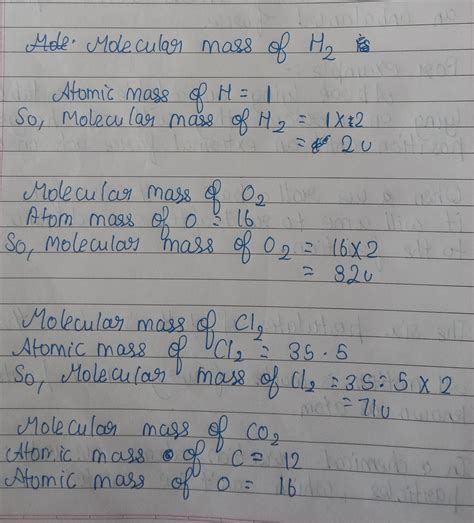 Mole. Molecular mass of H2
Atomic mass of H = 1
So, Molecular mass of H2 = 1×2
= 2u
Molecular mass of O2
Atom mass of O = 16
So, Molecular mass of O2 = 16×2
= 32u
Molecular mass of Cl2
Atomic mass of Cl2 = 35.5
So, Molecular mass of Cl2 = 35.5 × 2
= 71u
Molecular mass of CO2
Atomic mass of C = 12
Atomic mass of O = 16